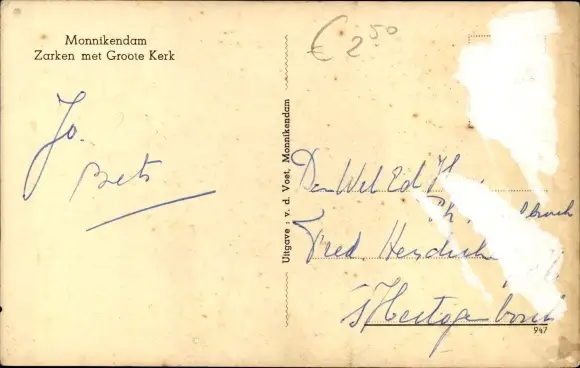 Monnikendam
Zarken met Groote Kerk
€ 2.50
Jo.
Bets
Uitgave : v. d. Voet, Monnikendam
Den Wel Ed H
Fred Hendrik
's Hertogenbosch
947